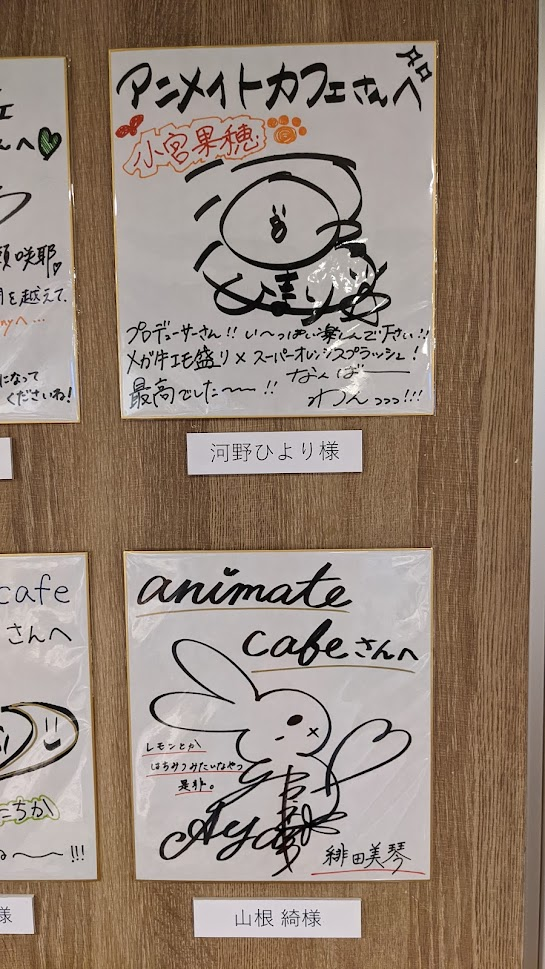 んへ
瀬咲耶
を越えて、
nyへ…
になって
くださいね!
アニメイトカフェさんへ
小宮果穂
プロデューサーさん!! い〜っぱい楽しんで下さい!!
メガ牛エモ盛り×スーパーオレンジスプラッシュ!
最高でした〜〜!!
なんばー
わんっっっ!!!
河野ひより様
cafe
さんへ
たちか
〜〜!!!
様
animate
cafeさんへ
レモンとか
はちみつみたいなやつ
是非。
Aya
緋田美琴
山根 綺様